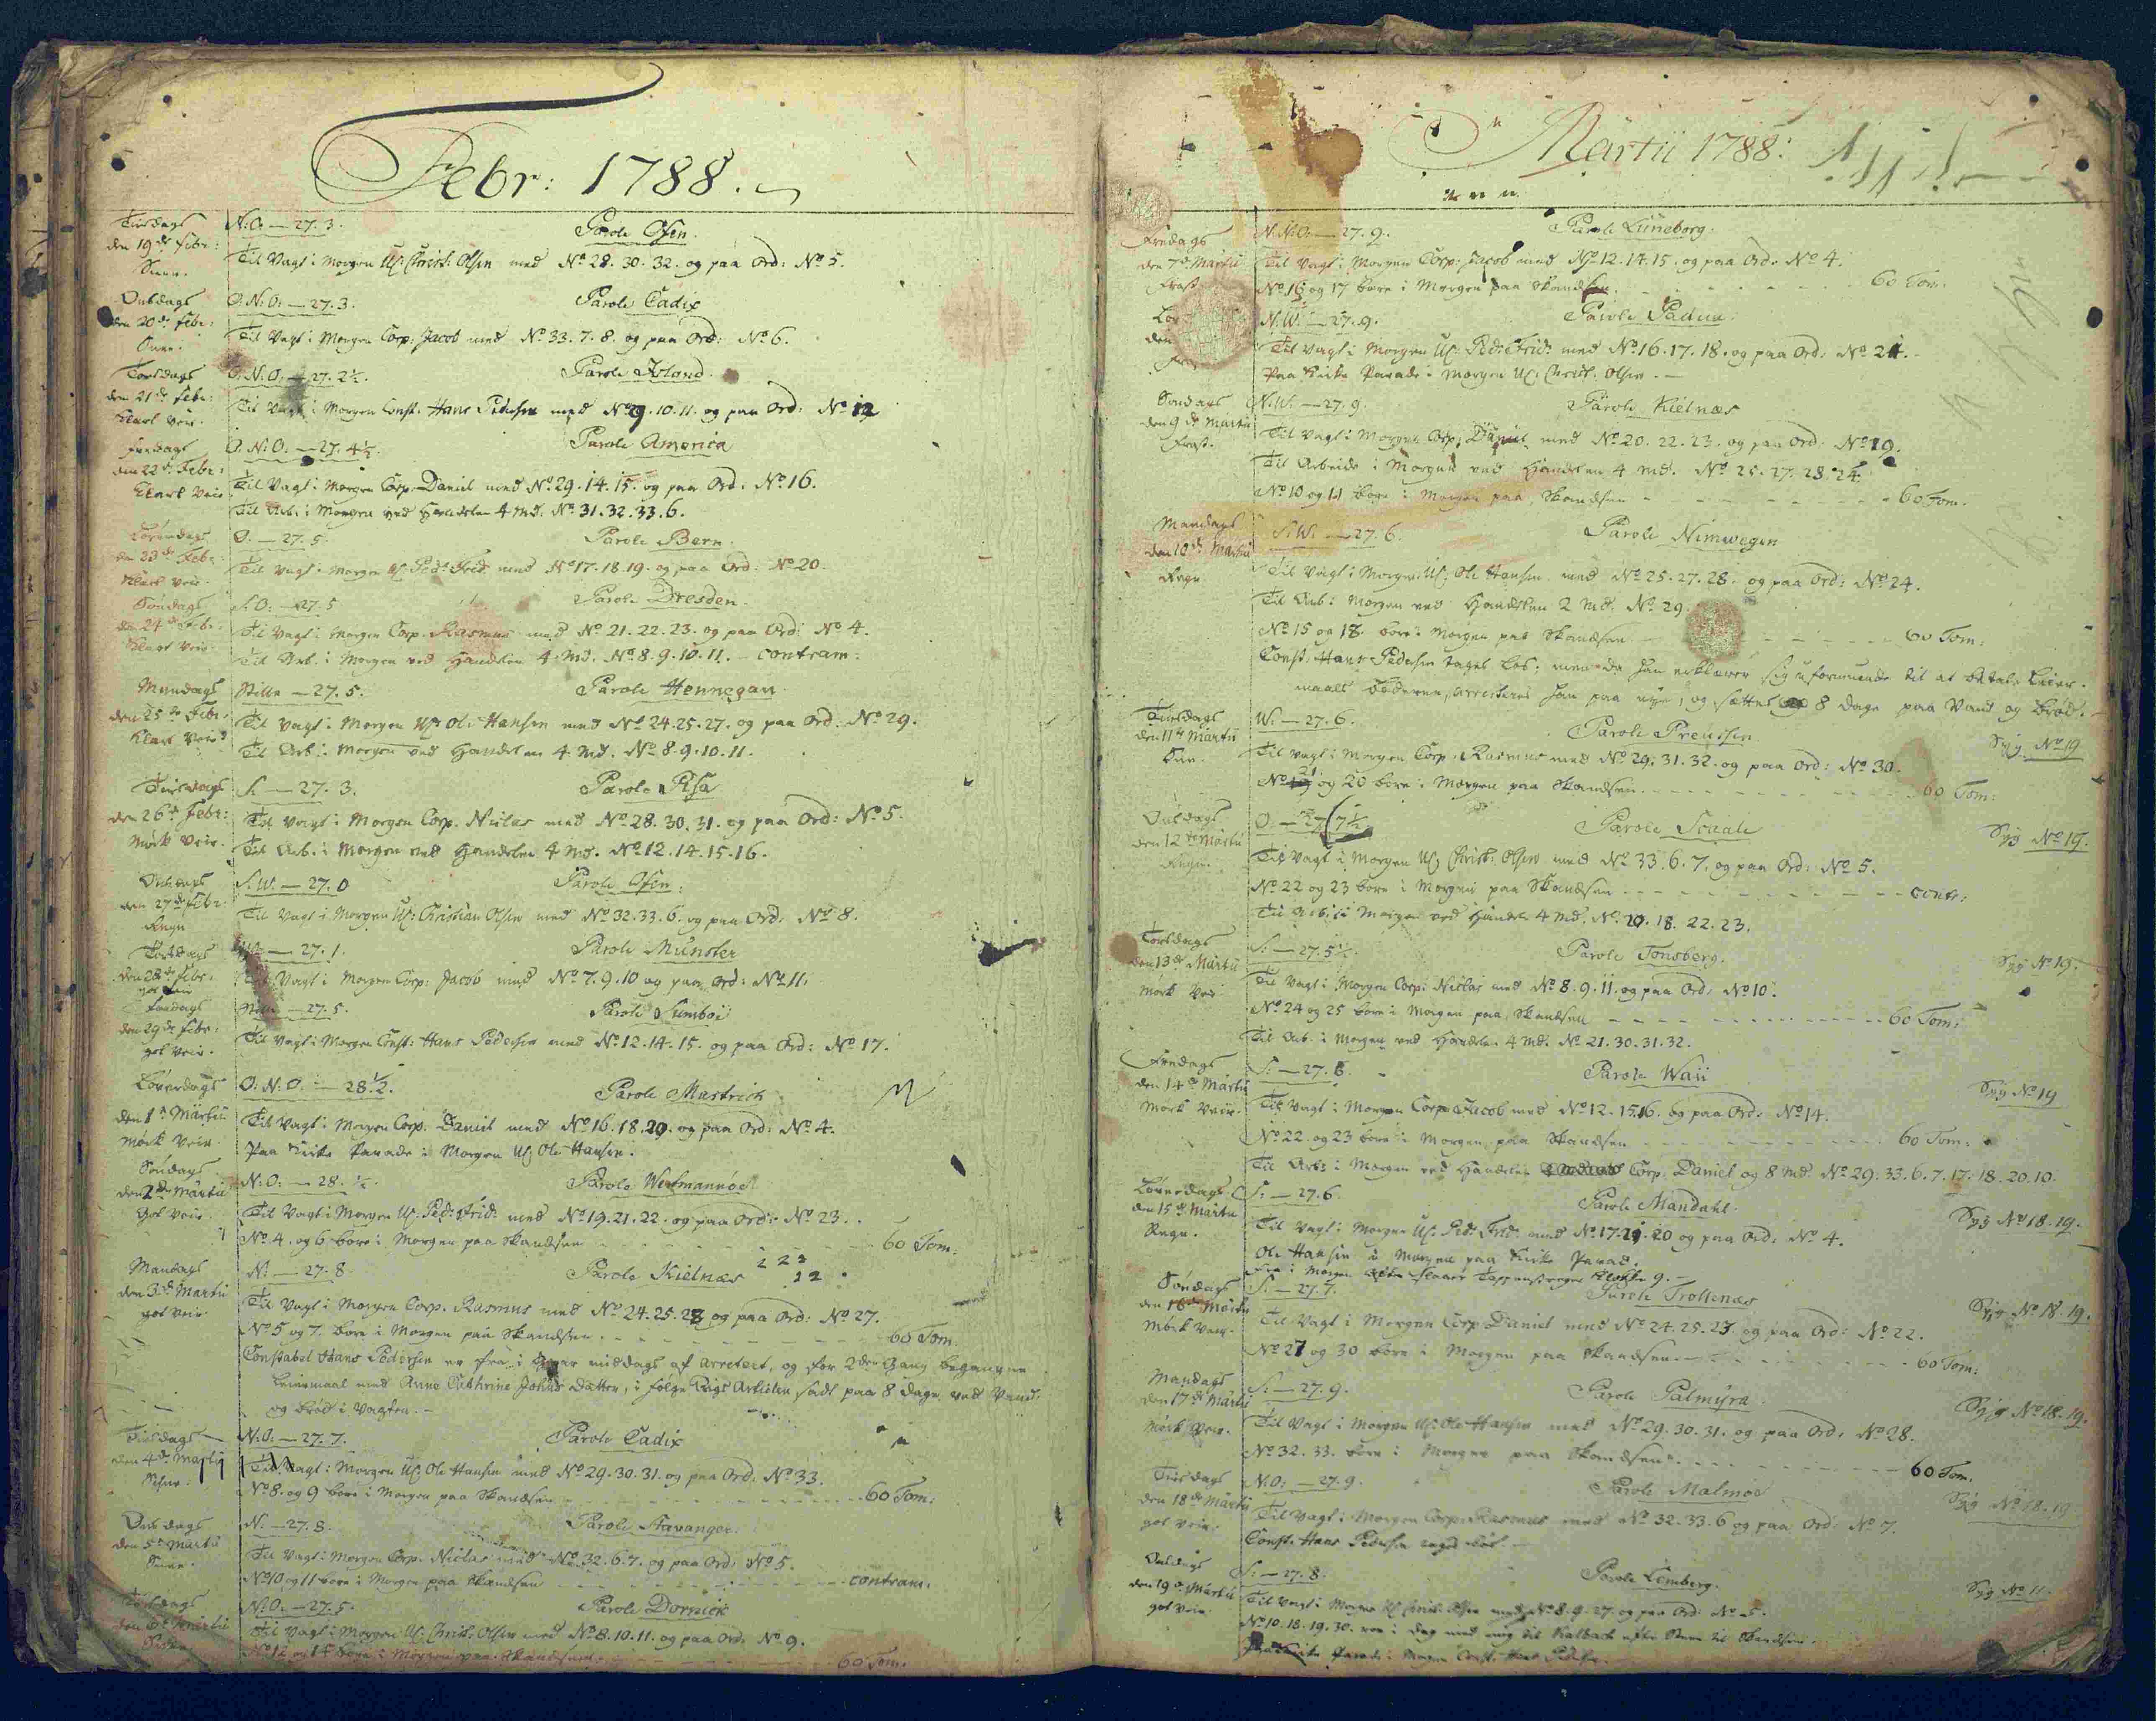 Febr: 1788.
Tirsdags N:O: — 27. 3. Parole Ofen.
den 19de Febr: Til Vagt i Morgen Uf: Christ: Olsen med No 28. 30. 32. og paa Ord: No 5.
Snee.
Onsdags O.N:O: — 27. 3. Parole Cadix
den 20de Febr: Til Vagt i Morgen Corp: Jacob med No 33. 7. 8. og paa Ord: No 6.
Snee.
Torsdags O.N:O. — 27. 2½. Parole
den 21de Febr: Til Vagt i Morgen Const. Hans Pedersen med No 9. 10. 11. og paa Ord: No 12
Klart Veir.
Fredags O.N:O. — 27. 4½. Parole America
den 22de Febr: Til Vagt i Morgen Corp. Daniel med No 29. 14. 15. og paa Ord: No 16.
Klart Veir Til Arb. i Morgen ved Handelen 4 Md. No 31. 32. 33. 6.
Løverdags O. — 27. 5. Parole Bern.
den 23de Febr: Til Vagt i Morgen Uf: Ped: Frid: med No 17. 18. 19. og paa Ord: No 20.
Klart Veir.
Søndags S.O: — 27. 5 Parole Dresden.
den 24de Febr. Til Vagt i Morgen Corp. Rasmus med No 21. 22. 23. og paa Ord: No 4.
Klart Veir. Til Arb. i Morgen ved Handelen 4. Md. No 8. 9. 10. 11. — contram:
Mandags Stille — 27. 5. Parole Hennegau.
den 25de Febr. Til Vagt i Morgen Uf: Ole Hansen med No 24. 25. 27. og paa Ord: No 29.
Klart Veir Til Arb. i Morgen ved Handelen 4 Md. No 8. 9. 10. 11.
Tirsdags S. — 27. 3. Parole Pisa
den 26de Febr: Til Vagt i Morgen Corp. Niclas med No 28. 30. 31. og paa Ord: No 5.
Mørk Veir. Til Arb. i Morgen ved Handelen 4 Md. No 12. 14. 15. 16.
Onsdags S.W. — 27. 0 Parole Ofen.
den 27de Febr: Til Vagt i Morgen Uf: Christian Olsen med No 32. 33. 6. og paa Ord: No 8.
Regn
Torsdags — 27. 1. Parole Münster
den 28de Febr. Til Vagt i Morgen Corp: Jacob med No 7. 9. 10 og paa Ord: No 11.
got Veir
Fredags Stille — 27. 5. Parole Sumboe
den 29de Febr: Til Vagt i Morgen Const: Hans Pedersen med No 12. 14. 15. og paa Ord: No 17.
got Veir.
Løverdags O.N.O. — 28½. Parole Mastrich
den 1te Martii Til Vagt i Morgen Corp. Daniel med No 16. 18. 20. og paa Ord: No 4.
Mørk Veir. Paa Kirke Parade i Morgen Uf: Ole Hansen.
Søndags N:O: — 28. ½. Parole Westmannøe
den 2den Martii Til Vagt i Morgen Uf: Ped: Frid: med No 19. 21. 22. og paa Ord: No 23.
Got Veir. No 4. og 6 bære i Morgen paa Skandsen 60 Tom:
Mandags N: — 27. 8. Parole Kielnæs
den 3de Martii Til Vagt i Morgen Corp. Rasmus med No 24. 25. 28 og paa Ord: No 27.
got Veir No 5 og 7. bære i Morgen paa Skandsen. 60 Tom.
Constabel Hans Pedersen er fra i Gaar middags af arretert, og for 2den Gang begangne
Leiermaal med Anne Cathrine Johns Datter, i følge Krigs Articlen, sadt paa 8 dage ved Vand
og brød i Vagten. —
Tirsdags N:O: — 27. 7. Parole Cadix
den 4de Martii Til Vagt i Morgen Uf: Ole Hansen med No 29. 30. 31. og paa Ord: No 33.
No 8. og 9 bære i Morgen paa Skandsen 60 Tom:
Onsdags N: — 27. 8. Parole Stavanger.
den 5te Martii Til Vagt i Morgen Corp. Niclas med No 32. 6. 7. og paa Ord: No 5.
Snee. No 10 og 11 bære i Morgen paa Skandsen contram.
Torsdags N:O. — 27. 5. Parole Dornick
den 6te Martii Til Vagt i Morgen Uf: Christ: Olsen med No 8. 10. 11. og paa Ord: No 9.
No 12 og 14 bære i Morgen paa Skandsen. 60 Tom.
Martii 1788.
Fredags N.N:O: — 27. 9. Parole Lüneborg.
den 7de Martii Til Vagt i Morgen Corp: Jacob med No 12. 14. 15. og paa Ord: No 4.
Frost No 16 og 17 bære i Morgen paa Skandsen. 60 Tom.
N.W. — 27. 9. Parole Padua.
den Til Vagt i Morgen Uf: Ped: Frid: med No 16. 17. 18. og paa Ord: No 21.
Paa Kirke Parade i Morgen Uf: Christ: Olsen. —
Søndags N.W. — 27. 9. Parole Kielnæs
den 9de Martii Til Vagt i Morgen Corp: Daniel med No 20. 22. 23. og paa Ord: No 19.
Frost. Til Arbeide i Morgen ved Handelen 4 Md. No 25. 27. 28. 24.
No 10 og 11 bære i Morgen paa Skandsen 60 Tom.
Mandags S.W. — 27. 6. Parole Nimwegen
den 10de Martii Til Vagt i Morgen Uf: Ole Hansen med No 25. 27. 28. og paa Ord: No 24.
Regn Til Arb: i Morgen ved Handelen 2 Md. No 29.
No 15 og 18. bære i Morgen paa Skandsen 60 Tom:
Const: Hans Pedersen taget løs; men da han erklærer sig uformuende til at betale Leier-
maals bøderne, arresteres han paa nye, og sættes 8 dage paa Vand og brød.
Tirsdags W. — 27. 6. Parole Preussen
den 11te Martii Til Vagt i Morgen Corp. Rasmus med No 29. 31. 32. og paa Ord: No 30. Syg No 19
No 21 og 20 bære i Morgen paa Skandsen. 60 Tom:
Onsdags O. — 27. 7½. Parole
den 12te Martii Til Vagt i Morgen Uf: Christ: Olsen med No 33. 6. 7. og paa Ord: No 5. Syg No 19.
Regn. No 22 og 23 bære i Morgen paa Skandsen contr:
Til Arb. i Morgen ved Handelen 4 Md. No 20. 18. 22. 23.
Torsdags S: — 27. 5½. Parole Tonsberg.
den 13de Martii Til Vagt i Morgen Corp: Niclas med No 8. 9. 11. og paa Ord: No 10. Syg No 19.
Mørk Veir No 24 og 25 bære i Morgen paa Skandsen 60 Tom:
Til Arb. i Morgen ved Handelen 4 Md. No 21. 30. 31. 32.
Fredags S: — 27. 6. Parole Waii
den 14de Martii Til Vagt i Morgen Corp. Jacob med No 12. 15. 16. og paa Ord: No 14. Syg No 19
Mørk Veir. No 22. og 23 bære i Morgen paa Skandsen 60 Tom:
Til Arb: i Morgen ved Handelen Corp. Daniel og 8 Md. No 29. 33. 6. 7. 17. 18. 20. 10.
Løverdags S: — 27. 6. Parole Mandahl.
den 15de Martii Til Vagt i Morgen Uf: Ped: Frid: med No 17. 20 og paa Ord: No 4. Syg No 18. 19.
Regn. Ole Hansen i Morgen paa Kirke Parade.
Fra i Morgen slaaes Tappenstregen Klokke 9. —
Søndags S: — 27. 7. Parole Trollenæs
den 16de Martii Til Vagt i Morgen Corp Daniel med No 24. 25. 23 og paa Ord: No 22. Syg No 18. 19.
Mørk Veir. No 27 og 30 bære i Morgen paa Skandsen 60 Tom:
Mandags S: — 27. 9. Parole Palmyra
den 17de Martii Til Vagt i Morgen Uf: Ole Hansen med No 29. 30. 31. og paa Ord: No 28. Syg No 18. 19.
Mørk Veir. No 32. 33. bære i Morgen paa Skandsen. 60 Tom.
Tirsdags N.O: — 27. 9. Parole Malmøe
den 18de Martii Til Vagt i Morgen Corp. Rasmus med No 32. 33. 6 og paa Ord: No 7. Syg No 18. 19
got Veir. Const: Hans Pedersen taget løs. —
Onsdags S: — 27. 8. Parole Lemberg.
den 19de Martii Til Vagt i Morgen Uf: Christ: Olsen med No 8. 9. 27. og paa Ord: No 5. Syg No 11.
got Veir. No 10. 18. 19. 30. roe i Dag med mig til Kalbach efter Steen til Skandsen.
Kirke Parade i Morgen Const: Hans Pedersen.